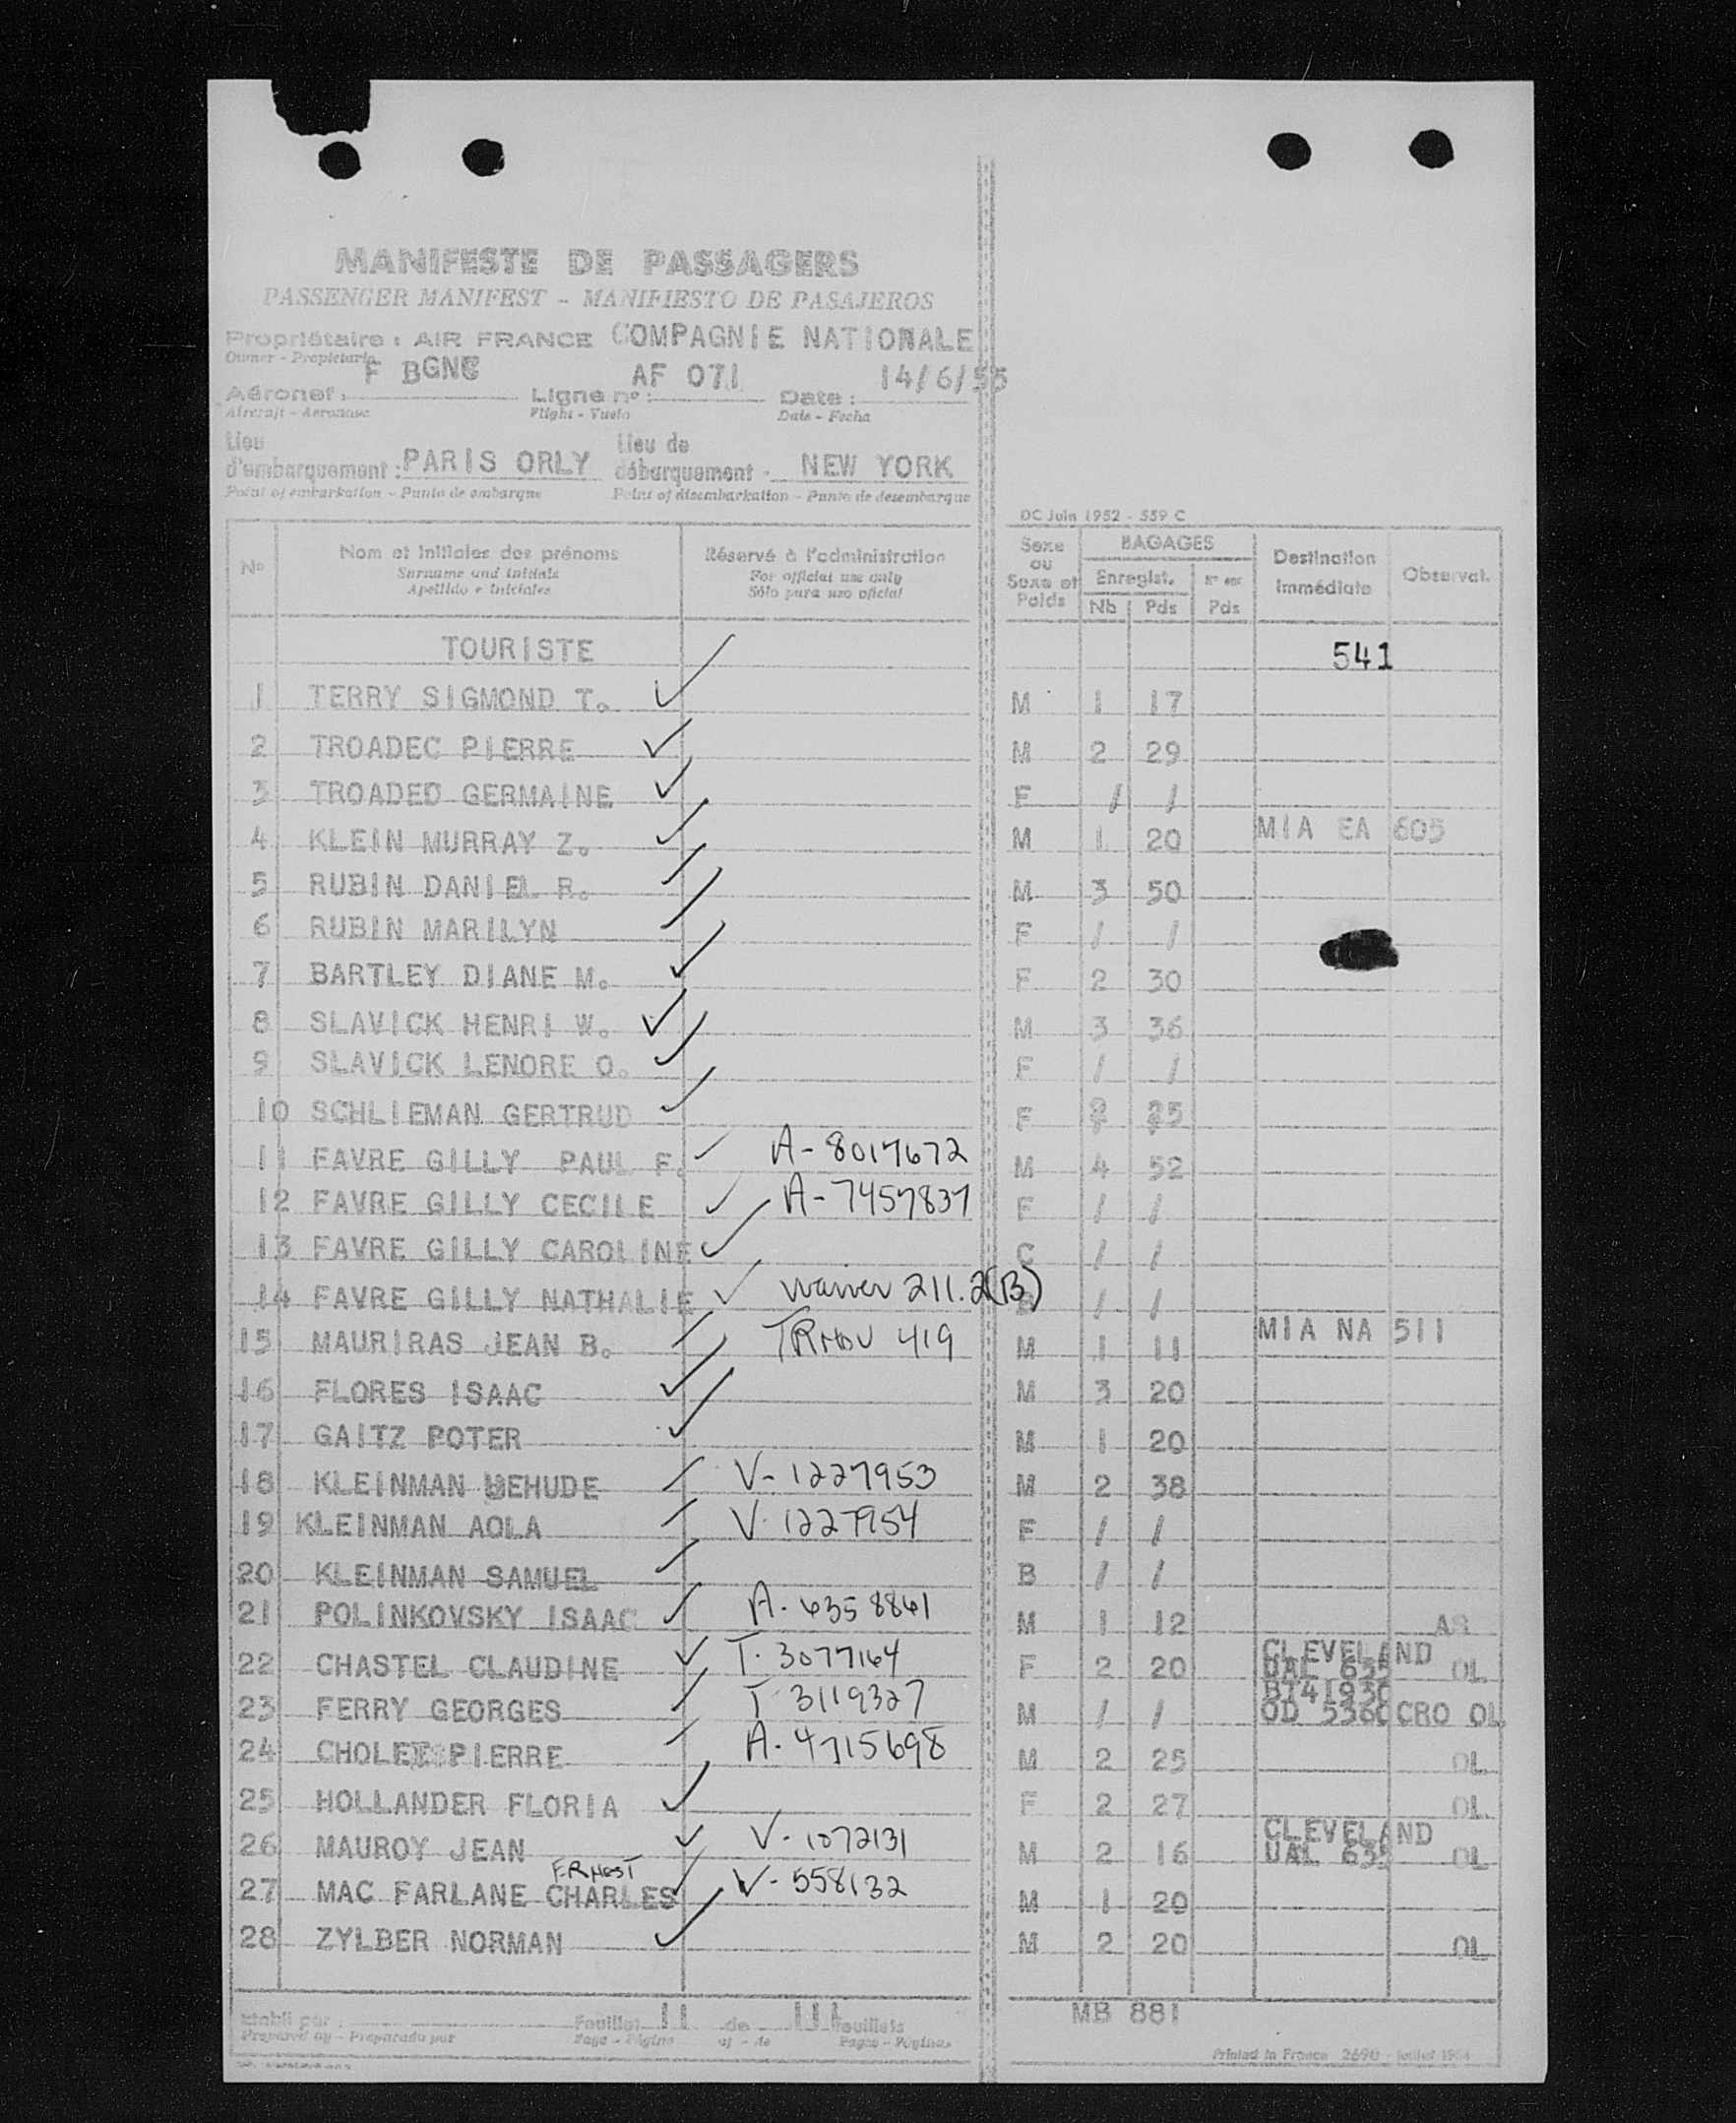 MANIFESTE DE PASSAGERS
PASSENGER MANIFEST - MANIFIESTO DE PASAJEROS
Propriétaire : AIR FRANCE COMPAGNIE NATIONALE
Owner - Propietario
F BGNC AF 071 14/6/55
Aéronef : Ligne no : Date :
Aircraft - Aeronave Flight - Vuelo Date - Fecha
Lieu d'embarquement : PARIS ORLY Lieu de débarquement : NEW YORK
Point of embarkation - Punto de embarque Point of disembarkation - Punto de desembarque
DC Juin 1952 - 559 C
No Nom et initiales des prénoms Réservé à l'administration Sexe ou Sexe et Poids BAGAGES Destination immédiate Observat.
Surname and initials For official use only Enregist.
Apellido e iniciales Sólo para uso oficial Nb Pds Pds
TOURISTE 541
1 TERRY SIGMOND T. M 1 17
2 TROADEC PIERRE M 2 29
3 TROADED GERMAINE F / /
4 KLEIN MURRAY Z. M 1 20 MIA EA 605
5 RUBIN DANIEL R. M 3 50
6 RUBIN MARILYN F / /
7 BARTLEY DIANE M. F 2 30
8 SLAVICK HENRI W. M 3 36
9 SLAVICK LENORE O. F / /
10 SCHLIEMAN GERTRUD F
11 FAVRE GILLY PAUL F. A-8017672 M 4 52
12 FAVRE GILLY CECILE A-7457837 F / /
13 FAVRE GILLY CAROLINE C / /
14 FAVRE GILLY NATHALIE waiver 211.2(B) / /
15 MAURIRAS JEAN B. 419 M 1 11 MIA NA 511
16 FLORES ISAAC M 3 20
17 GAITZ POTER M 1 20
18 KLEINMAN MEHUDE V-1227953 M 2 38
19 KLEINMAN AOLA V-1227954 F / /
20 KLEINMAN SAMUEL B / /
21 POLINKOVSKY ISAAC A-6358861 M 1 12
22 CHASTEL CLAUDINE T-3077164 F 2 20 CLEVELAND UAL 635 OL
23 FERRY GEORGES T-3119327 M / / OD 5360 CRO OL
24 CHOLET PIERRE A-4715698 M 2 25 OL
25 HOLLANDER FLORIA F 2 27 OL
26 MAUROY JEAN V-1072131 M 2 16 CLEVELAND UAL 635 OL
ERNEST
27 MAC FARLANE CHARLES V-558132 M 1 20
28 ZYLBER NORMAN M 2 20 OL
MB 881
Etabli par : Feuillet 11 de 111 feuillets
Prepared by - Preparado por Page - Página of - de Pages - Páginas
Printed in France 2690 - Juillet 1954